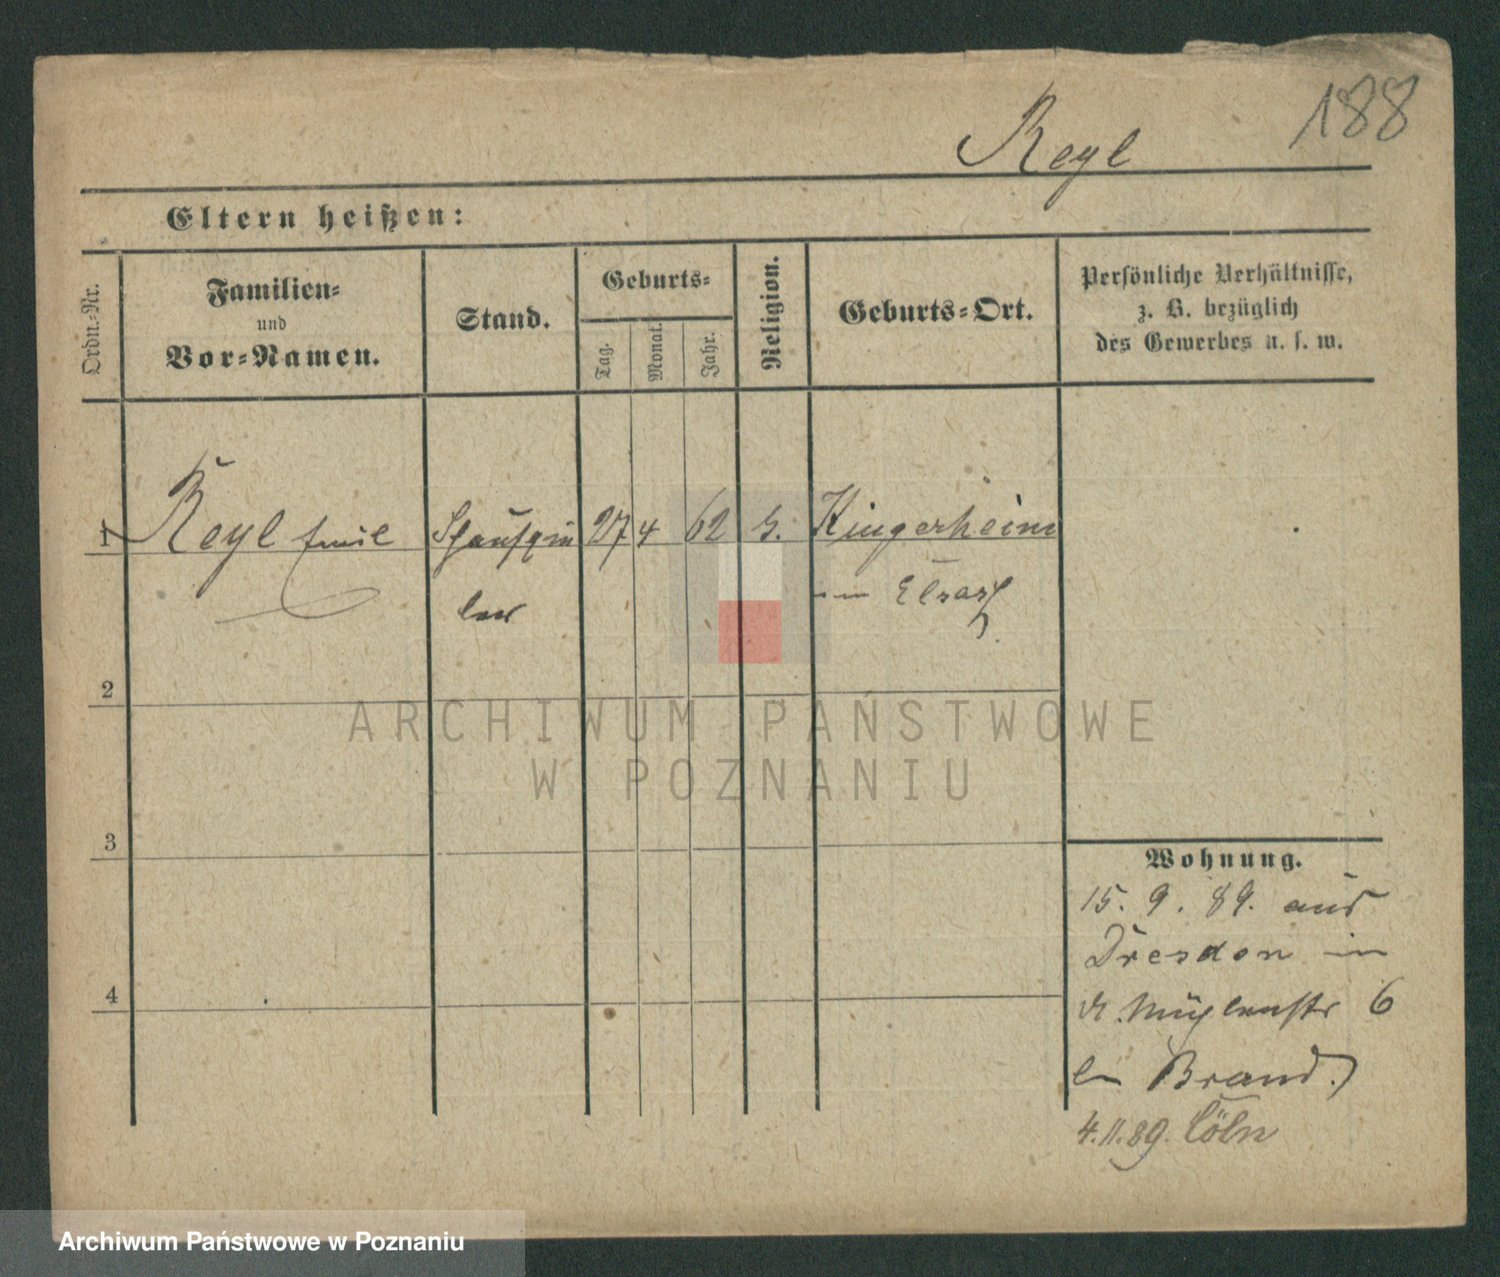 188
Reyl
Eltern heißen:
Ordn.-Nr.
Familien-
und
Vor-Namen.
Stand.
Geburts-
Tag.
Monat.
Jahr.
Religion.
Geburts-Ort.
Persönliche Verhältnisse,
z. B. bezüglich
des Gewerbes u. s. w.
1 Reyl Emil Schauspie 27 4 62 Kingerheim
ler im Elsaß
2
3
4
Wohnung.
15. 9. 89. aus
Dresden in
Mühlenstr 6
Brand.
4.11.89. Cöln
ARCHIWUM PAŃSTWOWE
W POZNANIU
Archiwum Państwowe w Poznaniu